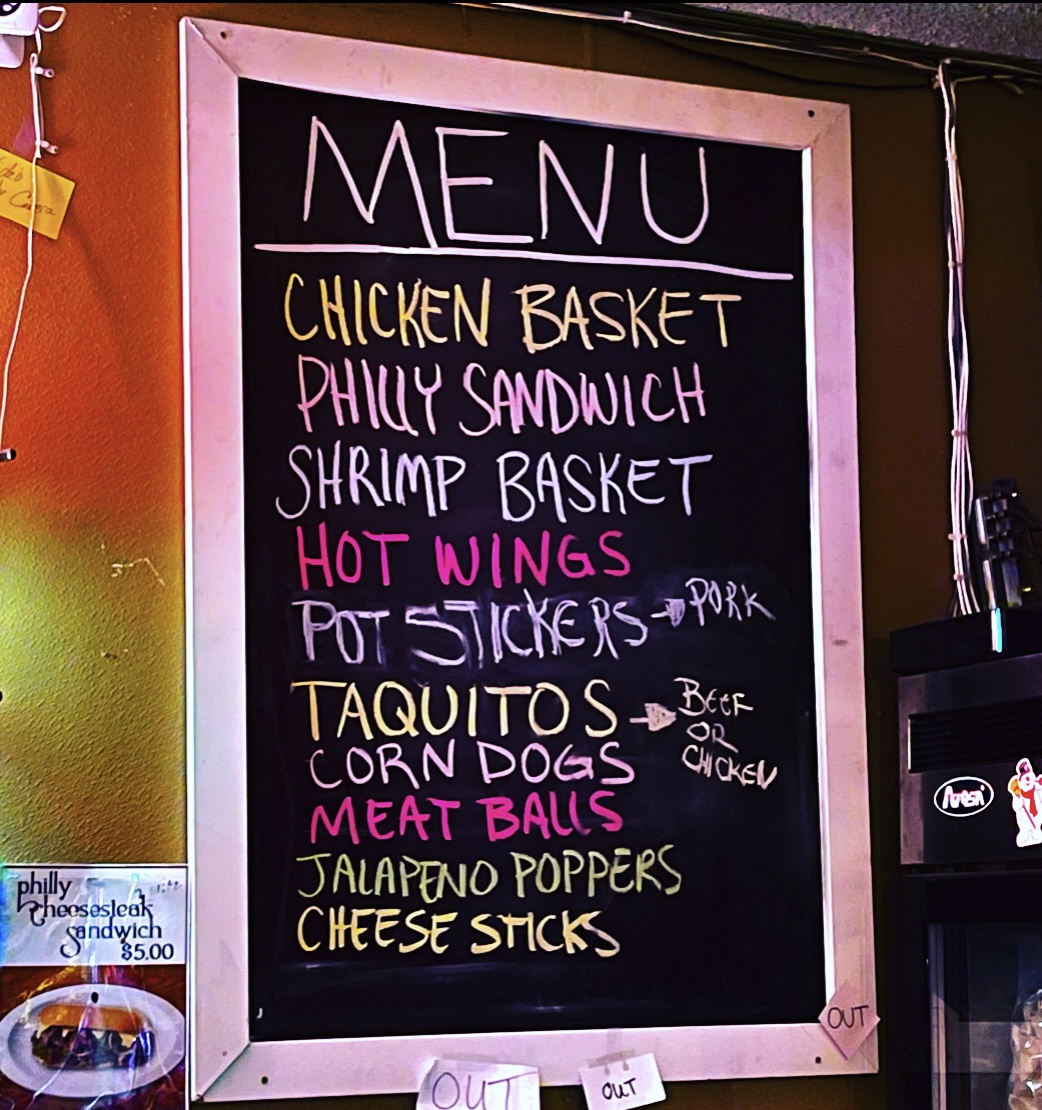 MENU
CHICKEN BASKET
PHILLY SANDWICH
SHRIMP BASKET
HOT WINGS
POT STICKERS → PORK
TAQUITOS → BEEF
OR
CHICKEN
CORN DOGS
MEAT BALLS
JALAPENO POPPERS
CHEESE STICKS
philly
cheesesteak
sandwich
$5.00
OUT
OUT
OUT